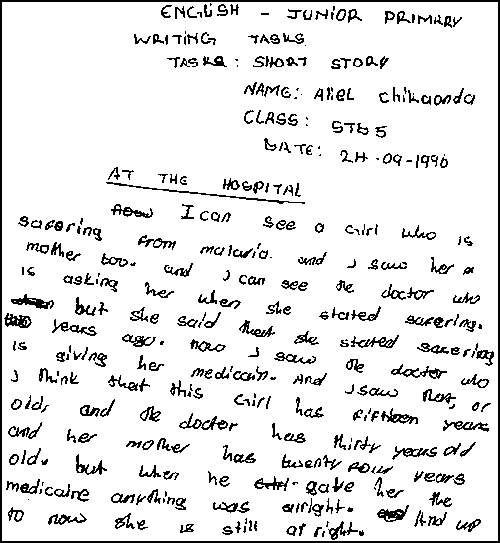 ENGLISH - JUNIOR PRIMARY
WRITING TASKS
TASKS: SHORT STORY
NAME: Allel Chikaonda
CLASS: STD 5
DATE: 24-09-1996
AT THE HOSPITAL
I can see a Girl who is
safering from malaria. and I saw her
mother too. and I can see the doctor who
is asking her when she stated safering.
but she said that she stated safering
years ago. now I saw the doctor who
is giving her medicain. And I saw that, or
I think that this Girl has fifteen years
old, and the doctor has thirty years old
and her mother has twenty four years
old. but when he gave her the
medicaire anything was alright. And up
to now she is still at right.